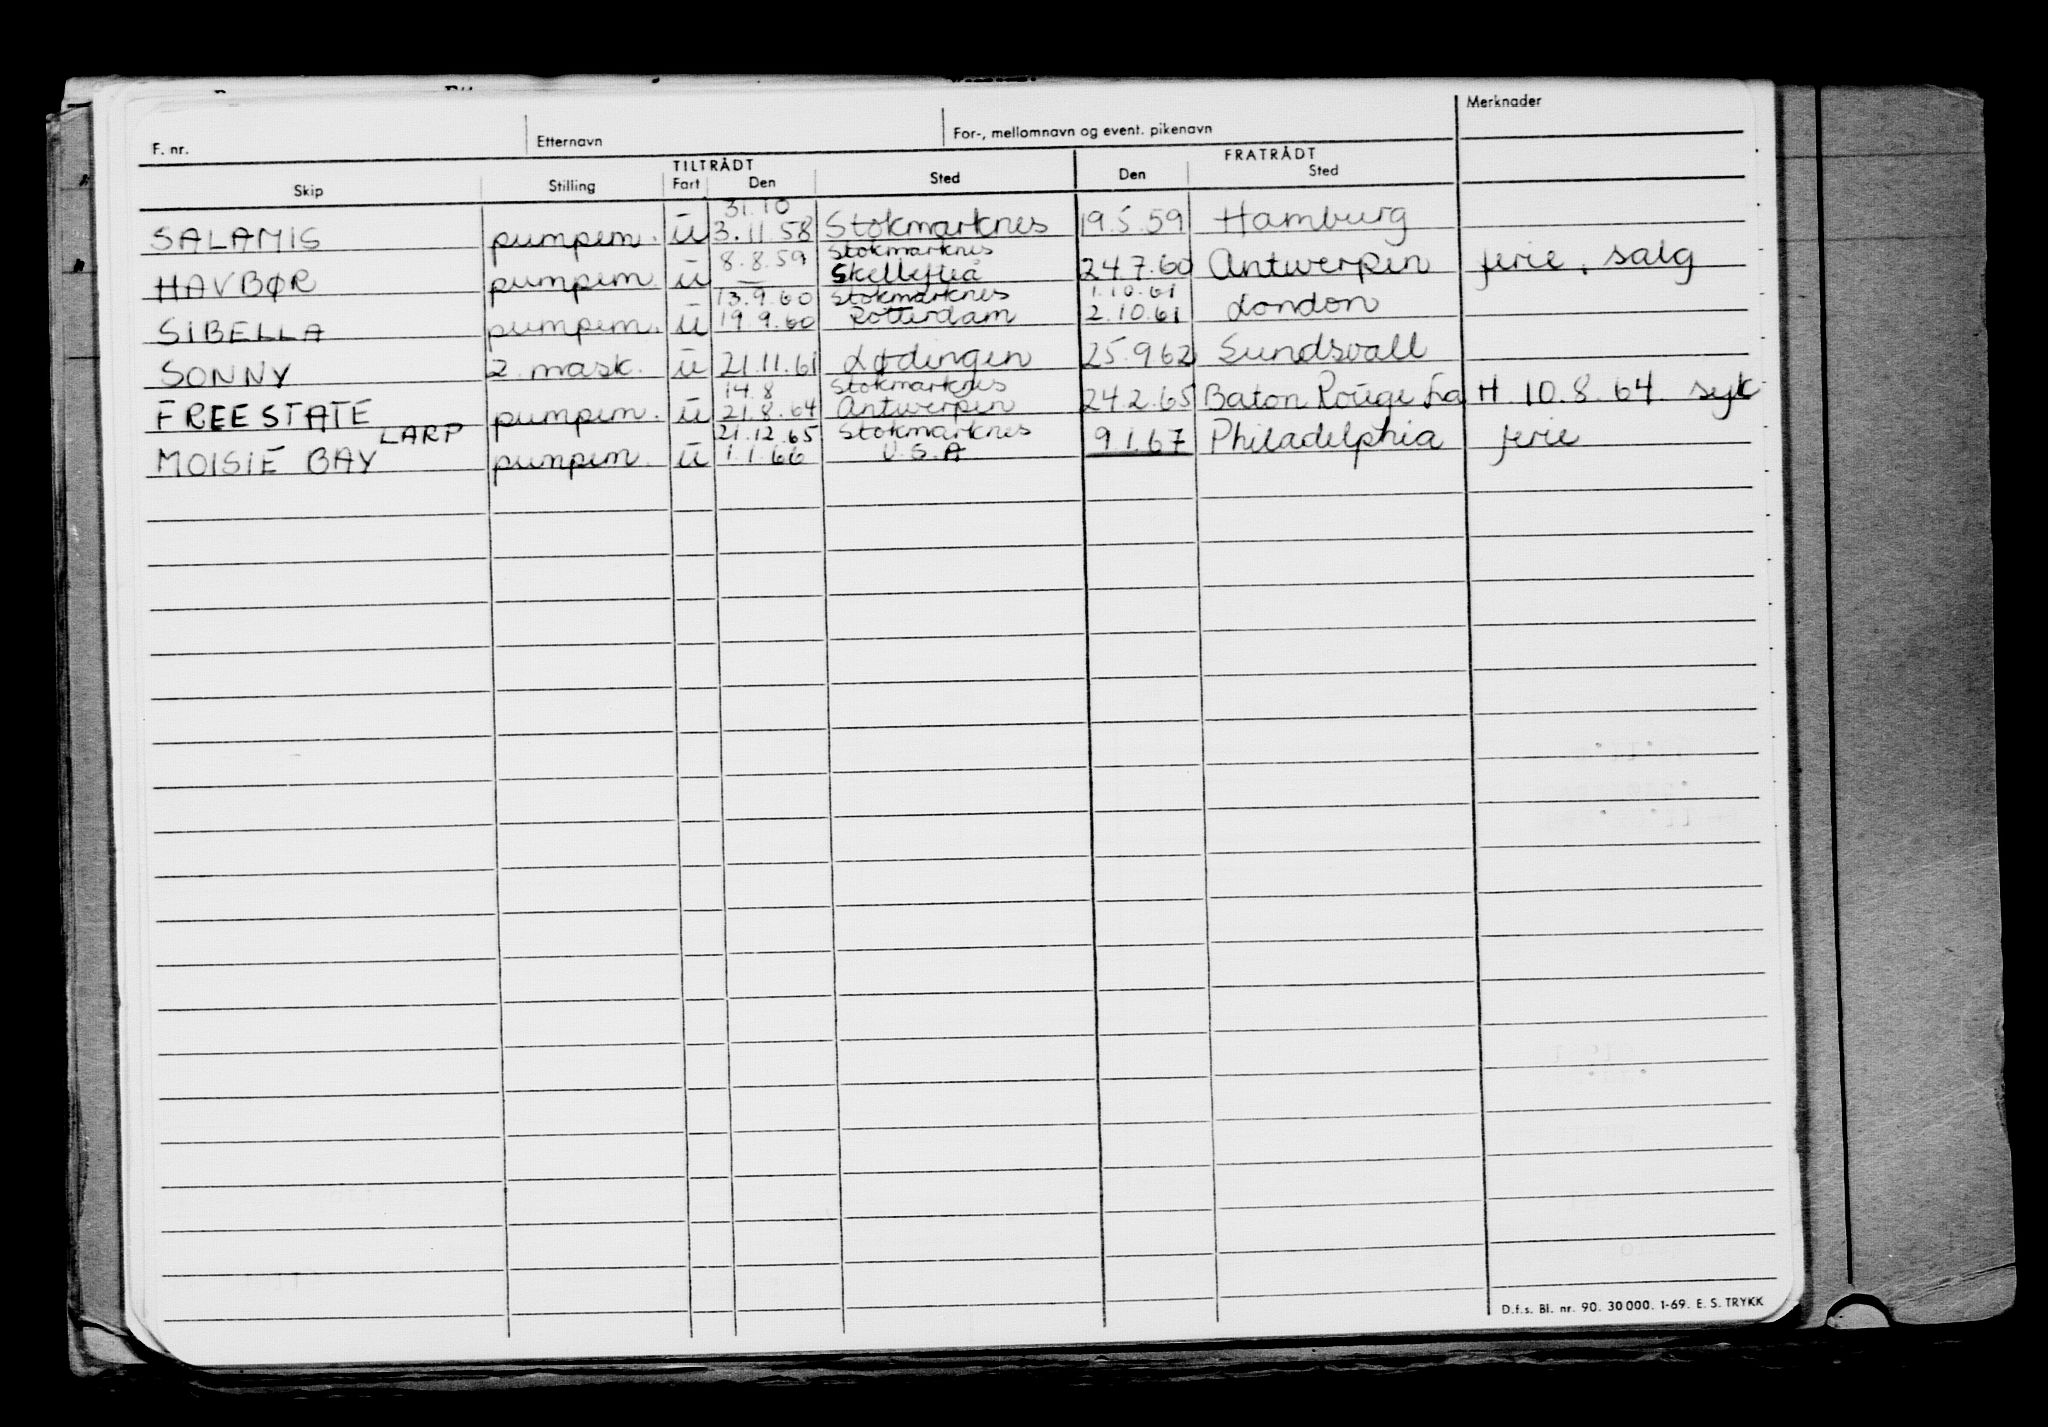 F. nr. Etternavn For-, mellomnavn og event. pikenavn Merknader
TILTRÅDT FRATRÅDT
Skip Stilling Fart Den Sted Den Sted
31.10
SALAMIS pumpem. ū 3.11.58 Stokmarknes 19.5.59 Hamburg
8.8.59 Stokmarknes
HAVBØR pumpem. ū — Skellefteå 24.7.60 Antwerpen ferie, salg
13.9.60 Stokmarknes 1.10.61
SIBELLA pumpem. ū 19.9.60 Rotterdam 2.10.61 London
SONNY 2. mask. ū 21.11.61 Lødingen 25.9.62 Sundsvall
14.8 Stokmarknes
FREESTATE pumpem. ū 21.8.64 Antwerpen 24.2.65 Baton Rouge La H. 10.8.64 syk
LARP 21.12.65 Stokmarknes
MOISIE BAY pumpem. ū 1.1.66 U.S.A 9.1.67 Philadelphia ferie
D.f.s. Bl. nr. 90. 30 000. 1-69. E. S. TRYKK